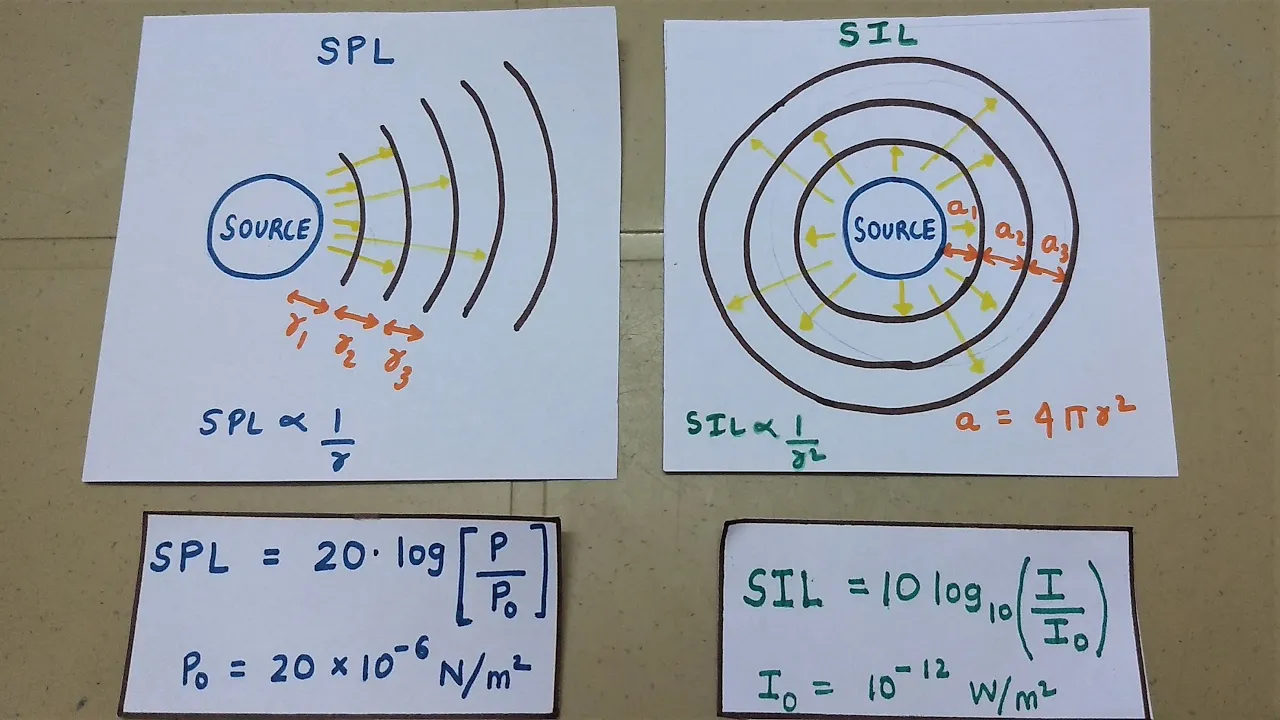 SPL
SOURCE
r₁ r₂ r₃
SPL ∝ 1/r
SIL
SOURCE
a₁ a₂ a₃
SIL ∝ 1/r²
a = 4πr²
SPL = 20·log[P/P₀]
P₀ = 20 × 10⁻⁶ N/m²
SIL = 10 log₁₀(I/I₀)
I₀ = 10⁻¹² W/m²